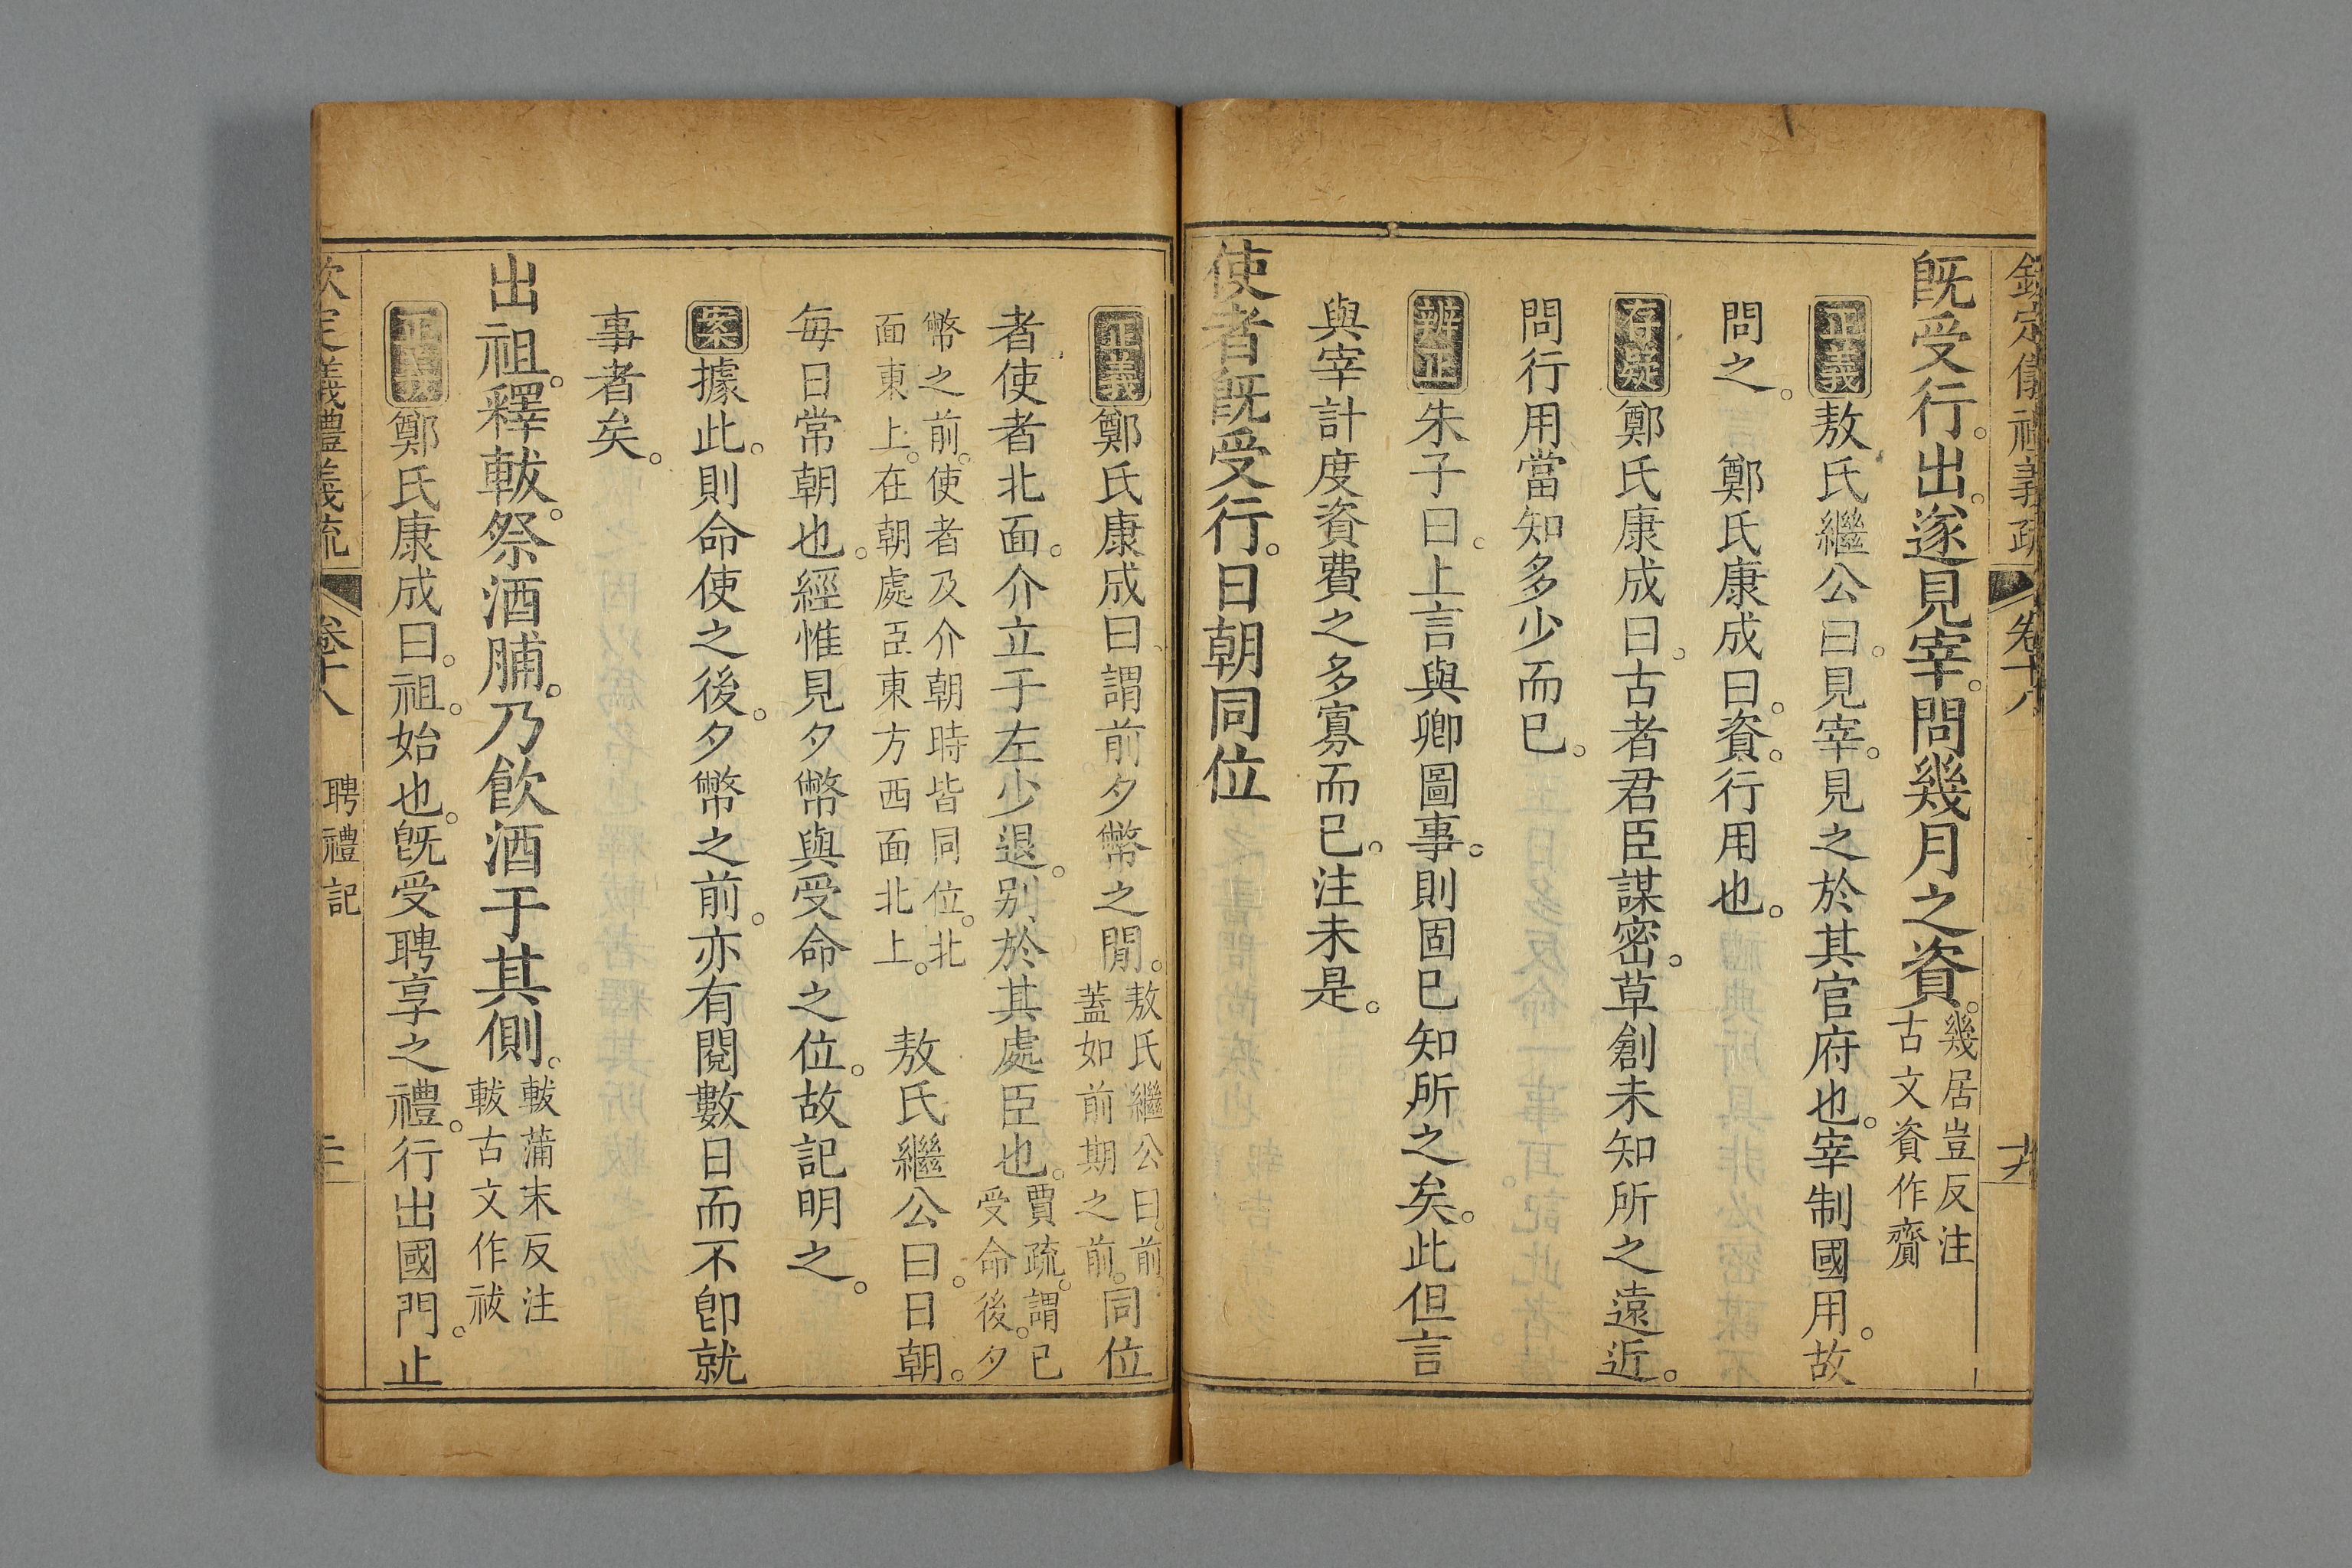 欽定儀禮義疏 卷十八
既受行。出。遂見宰。問幾月之資。幾居豈反注古文資作齎
正義敖氏繼公曰。見宰。見之於其官府也。宰制國用。故
問之。 鄭氏康成曰。資。行用也。
存疑鄭氏康成曰。古者君臣謀密。草創未知所之遠近。
問行用當知多少而已。
辨正朱子曰。上言與卿圖事。則固已知所之矣。此但言
與宰計度資費之多寡而已。注未是。
使者既受行。日朝同位
正義鄭氏康成曰。謂前夕幣之閒。敖氏繼公曰。前蓋如前期之前。同位
者使者北面。介立于左少退。别於其處臣也。賈疏。謂已受命後。夕
幣之前。使者及介朝時皆同位。北面東上。在朝處臣東方西面北上。 敖氏繼公曰。日朝。
每日常朝也。經惟見夕幣與受命之位。故記明之。
案據此。則命使之後。夕幣之前。亦有閱數日而不卽就
事者矣。
出祖。釋軷。祭酒脯。乃飲酒于其側。軷蒲末反注軷古文作祓
正義鄭氏康成曰。祖。始也。旣受聘享之禮。行出國門。止
欽定義禮義疏 卷十八 聘禮記